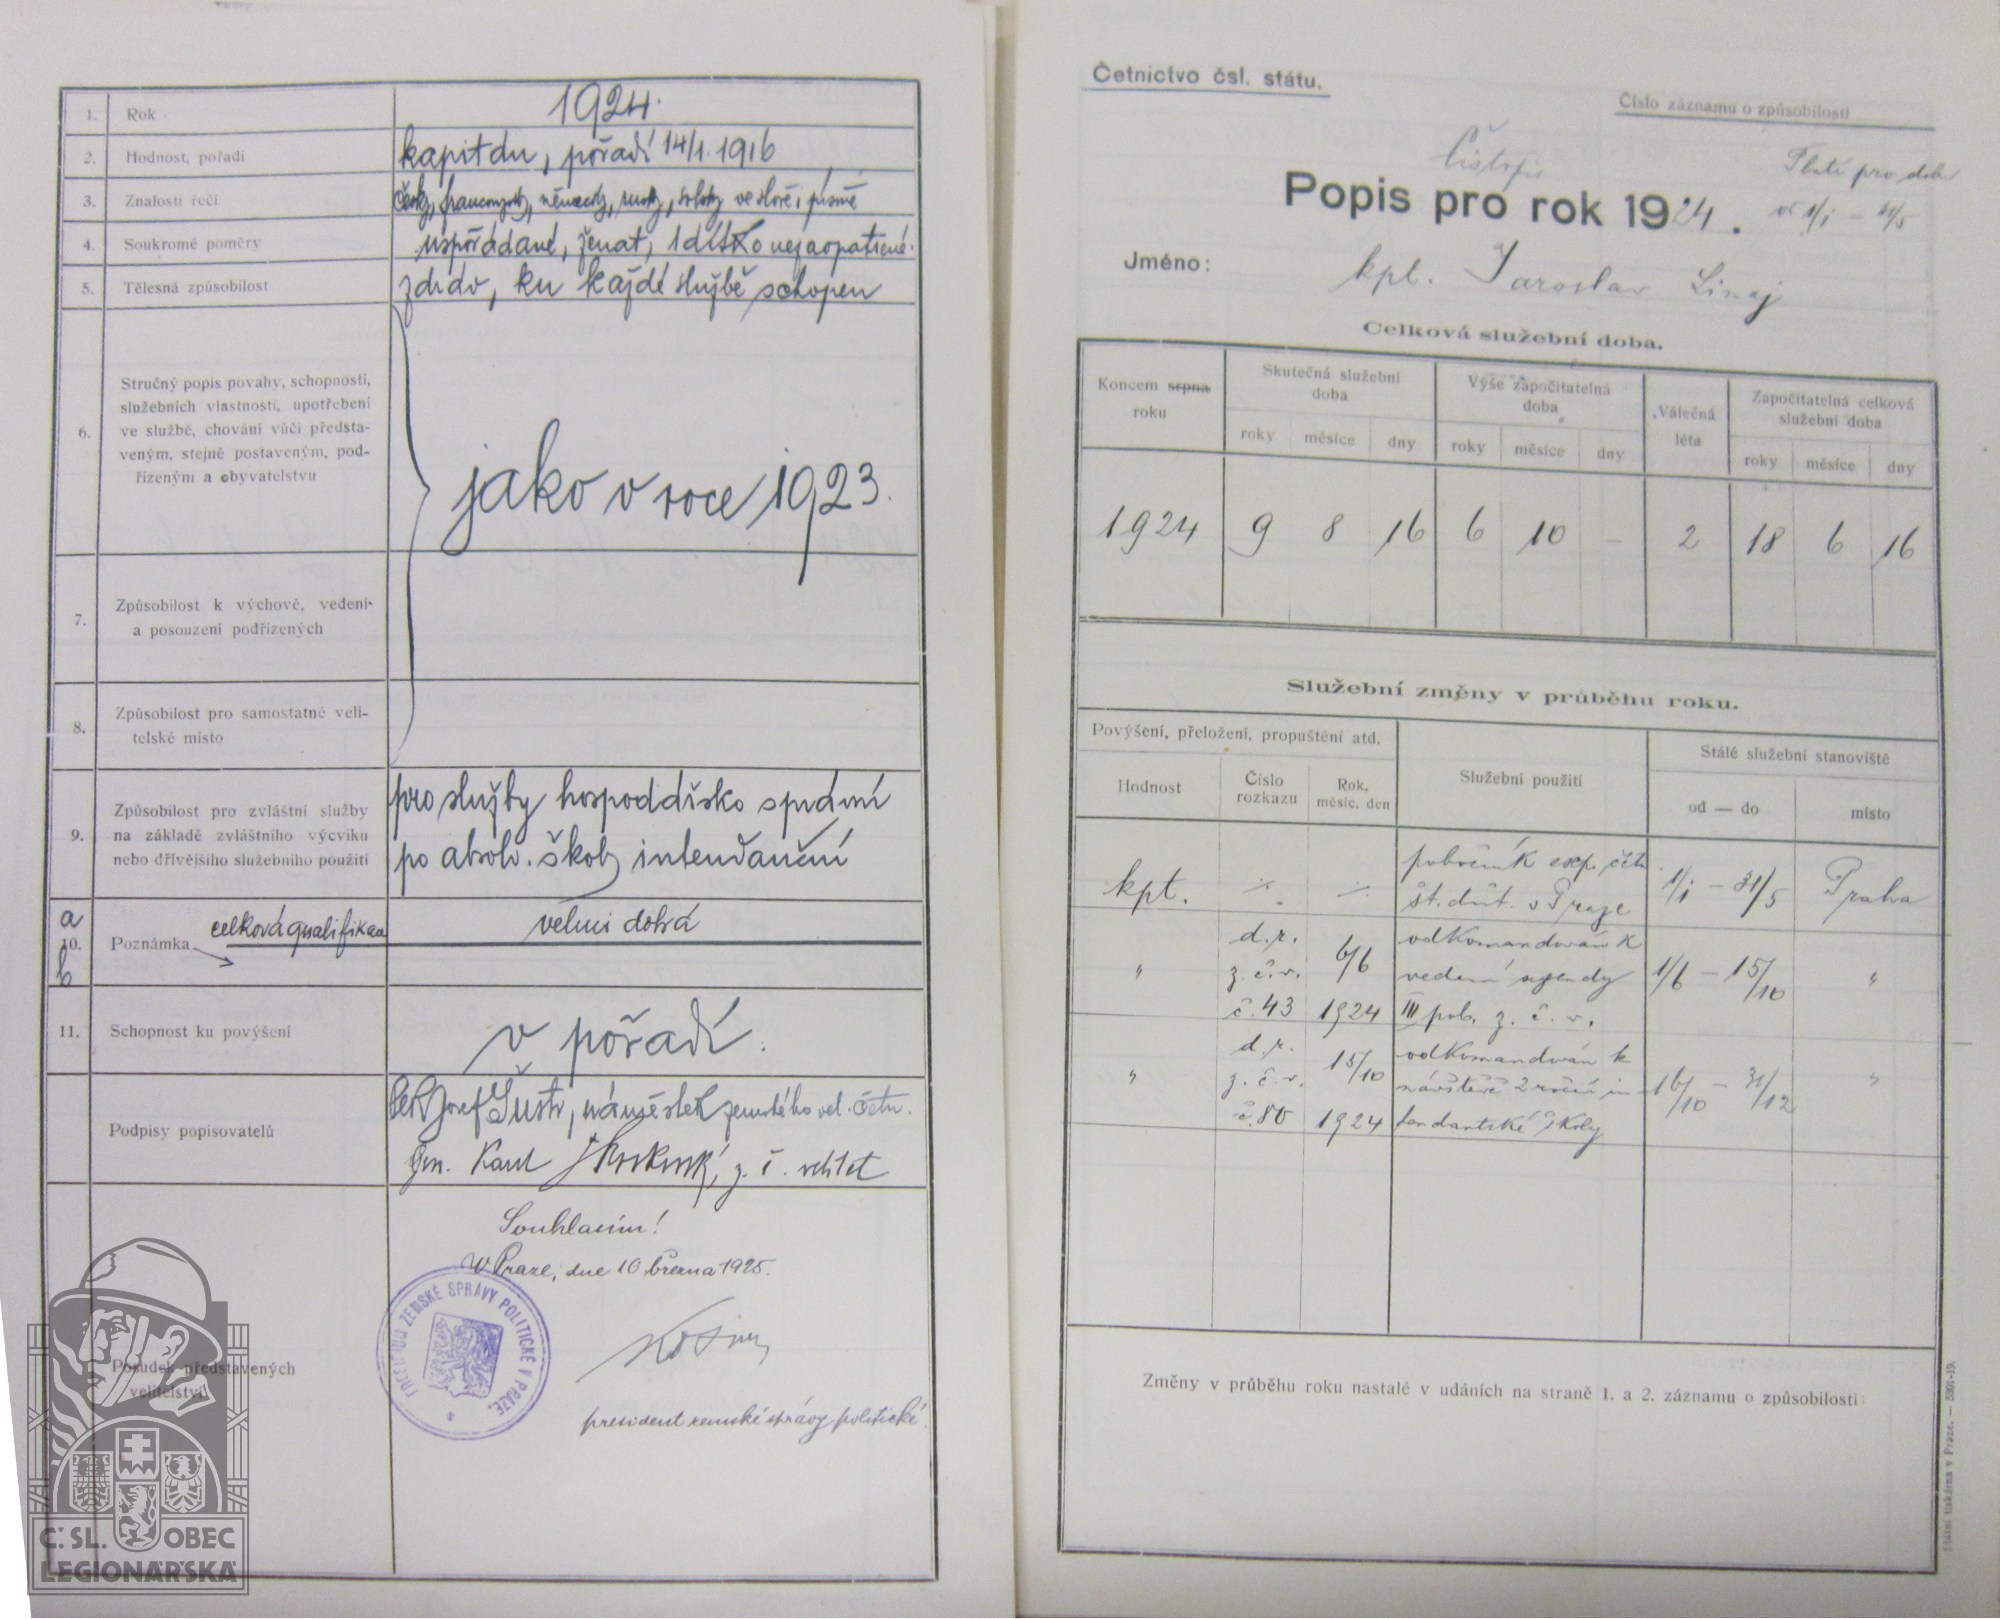 1. Rok 1924.
2. Hodnost, pořadí kapitán, pořadí 14/1. 1916
3. Znalosti řečí česky, francouzsky, německy, rusky, srbsky ve slově i písmě
4. Soukromé poměry uspořádané, ženat, 1 dítko nezaopatřené.
5. Tělesná způsobilost zdráv, ku každé službě schopen
6. Stručný popis povahy, schopností,
služebních vlastností, upotřebení
ve službě, chování vůči předsta-
veným, stejně postaveným, pod-
řízeným a obyvatelstvu
jako v roce 1923.
7. Způsobilost k výchově, vedení
a posouzení podřízených
8. Způsobilost pro samostatné veli-
telské místo
9. Způsobilost pro zvláštní služby
na základě zvláštního výcviku
nebo dřívějšího služebního použití
pro služby hospodářsko správní
po absolv. školy intendanční
a celková qualifikace velmi dobrá
10. Poznámka
b
11. Schopnost ku povýšení v pořadí.
Podpisy popisovatelů
Josef Šustr, náměstek zemského vel. četn.
Gen. Karel z. č. velitel
Souhlasím!
V Praze, dne 10 března 1925.
PRESIDIUM ZEMSKÉ SPRÁVY POLITICKÉ V PRAZE.
Posudek představených
velitelství
president zemské správy politické.
Č.SL. OBEC
LEGIONÁŘSKÁ
Četnictvo čsl. státu.
Číslo záznamu o způsobilosti
Čistopis
Platí pro dobu
od 1/1 – 31/5
Popis pro rok 1924.
Jméno: kpt. Jaroslav Linaj
Celková služební doba.
Koncem srpna
roku
Skutečná služební
doba
Výše započitatelná
doba
Válečná
léta
Započitatelná celková
služební doba
roky měsíce dny roky měsíce dny roky měsíce dny
1924 9 8 16 6 10 – 2 18 6 16
Služební změny v průběhu roku.
Povýšení, přeložení, propuštění atd.
Služební použití
Stálé služební stanoviště
Hodnost
Číslo
rozkazu
Rok,
měsíc, den
od — do
místo
kpt. ·/· ·/· pobočník exp. četn. 1/1 – 31/5 Praha
št. důt. v Praze
" d. r. 6/6 odkomandován k 1/6 – 15/10 "
z. č. v. vedení agendy
č. 43 1924 III pob. z. č. v.
" d. r. 15/10 odkomandován k 16/10 – 31/12 "
z. č. v. návštěvě 2 roční in-
č. 80 1924 tendantské školy
Změny v průběhu roku nastalé v udáních na straně 1. a 2. záznamu o způsobilosti
Státní tiskárna v Praze. — 5901-19.